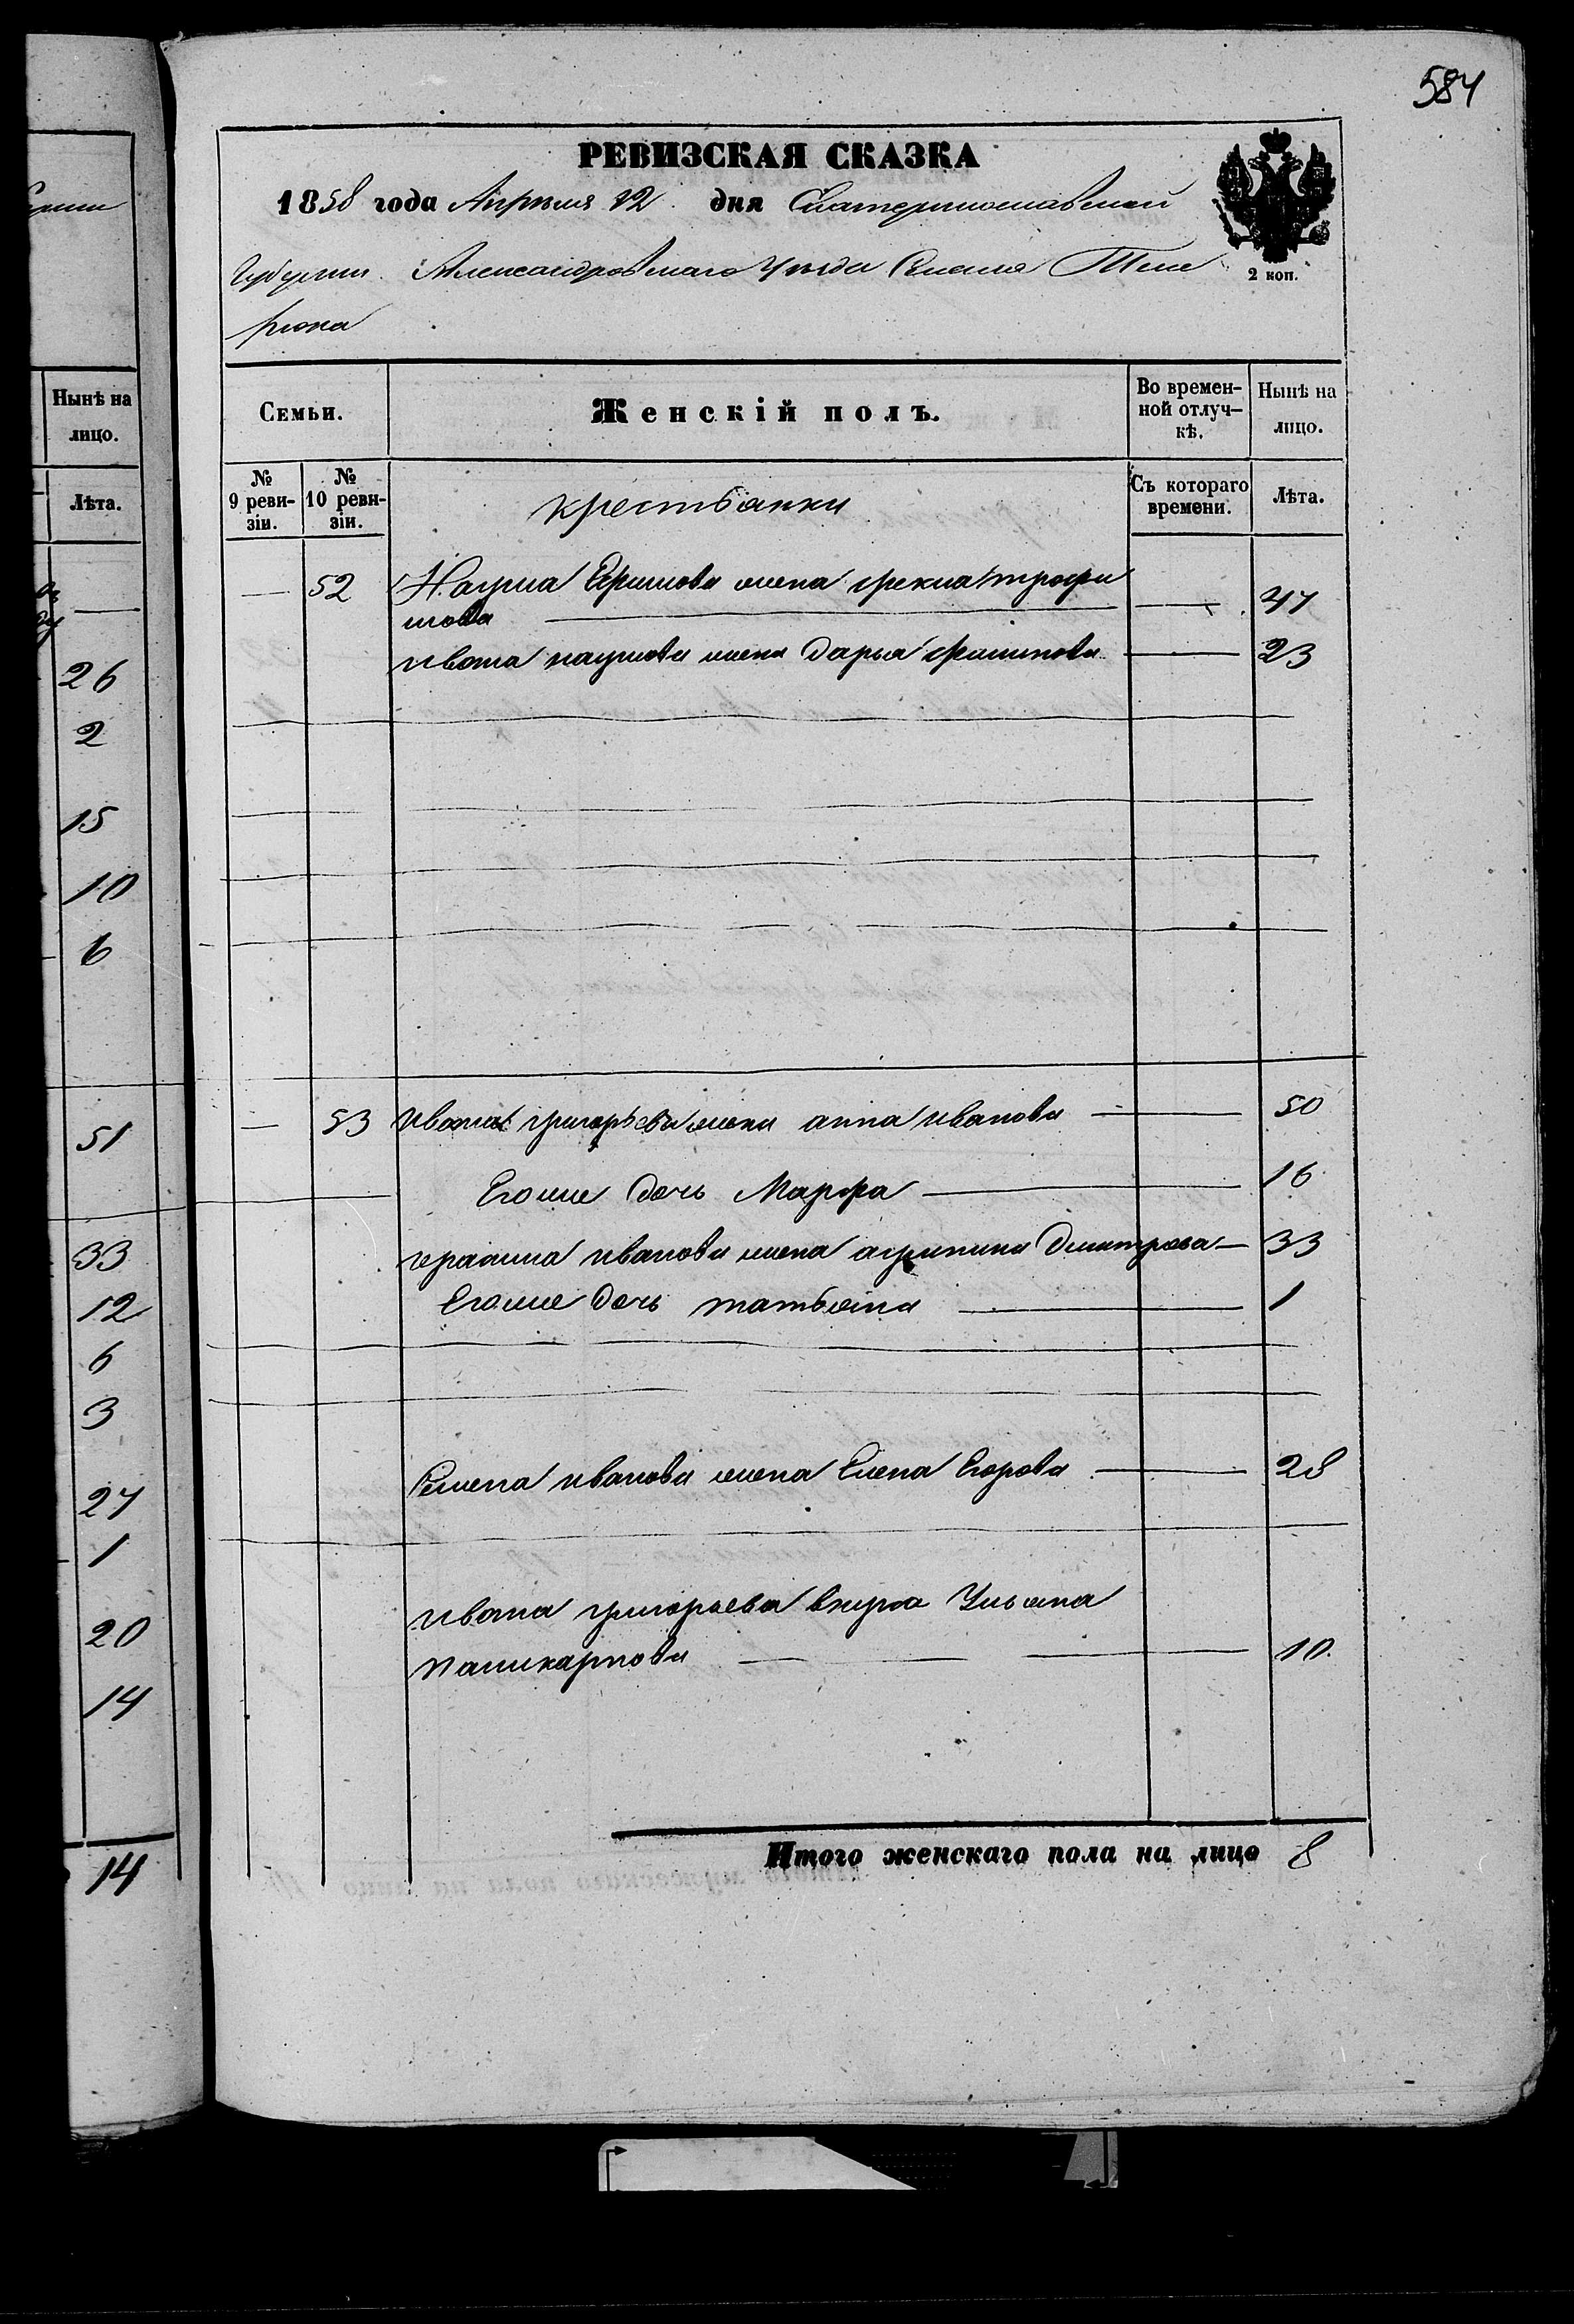 584
РЕВИЗСКАЯ СКАЗКА
1858 года Апреля 12 дня Екатеринославской
Губернии Александровскаго Уезда Селения Тем
рюка
2 коп.
Семьи.
Женскій полъ.
Во времен-
ной отлуч-
кѣ.
Нынѣ на
лицо.
№
9 реви-
зіи.
№
10 реви-
зіи.
крестьянки
Съ котораго
времени.
Лѣта.
— 52 Наума Ефимова жена фекла трофи
мова — — 47
ивана наумова жена дарья филипова — 23
— 53 ивана григорьева жена анна иванова — 50
Его же дочь Марфа — 16
герасима иванова жена агрипина дмитрова — 33
Его же дочь татьяна — 1
Семена иванова жена Елена Егорова — 28
ивана григорьева внука Ульяна
паликарпова — — 10.
Итого женскаго пола на лицо 8
Нынѣ на
лицо.
Лѣта.
26
2
15
10
6
51
33
12
6
3
27
1
20
14
14